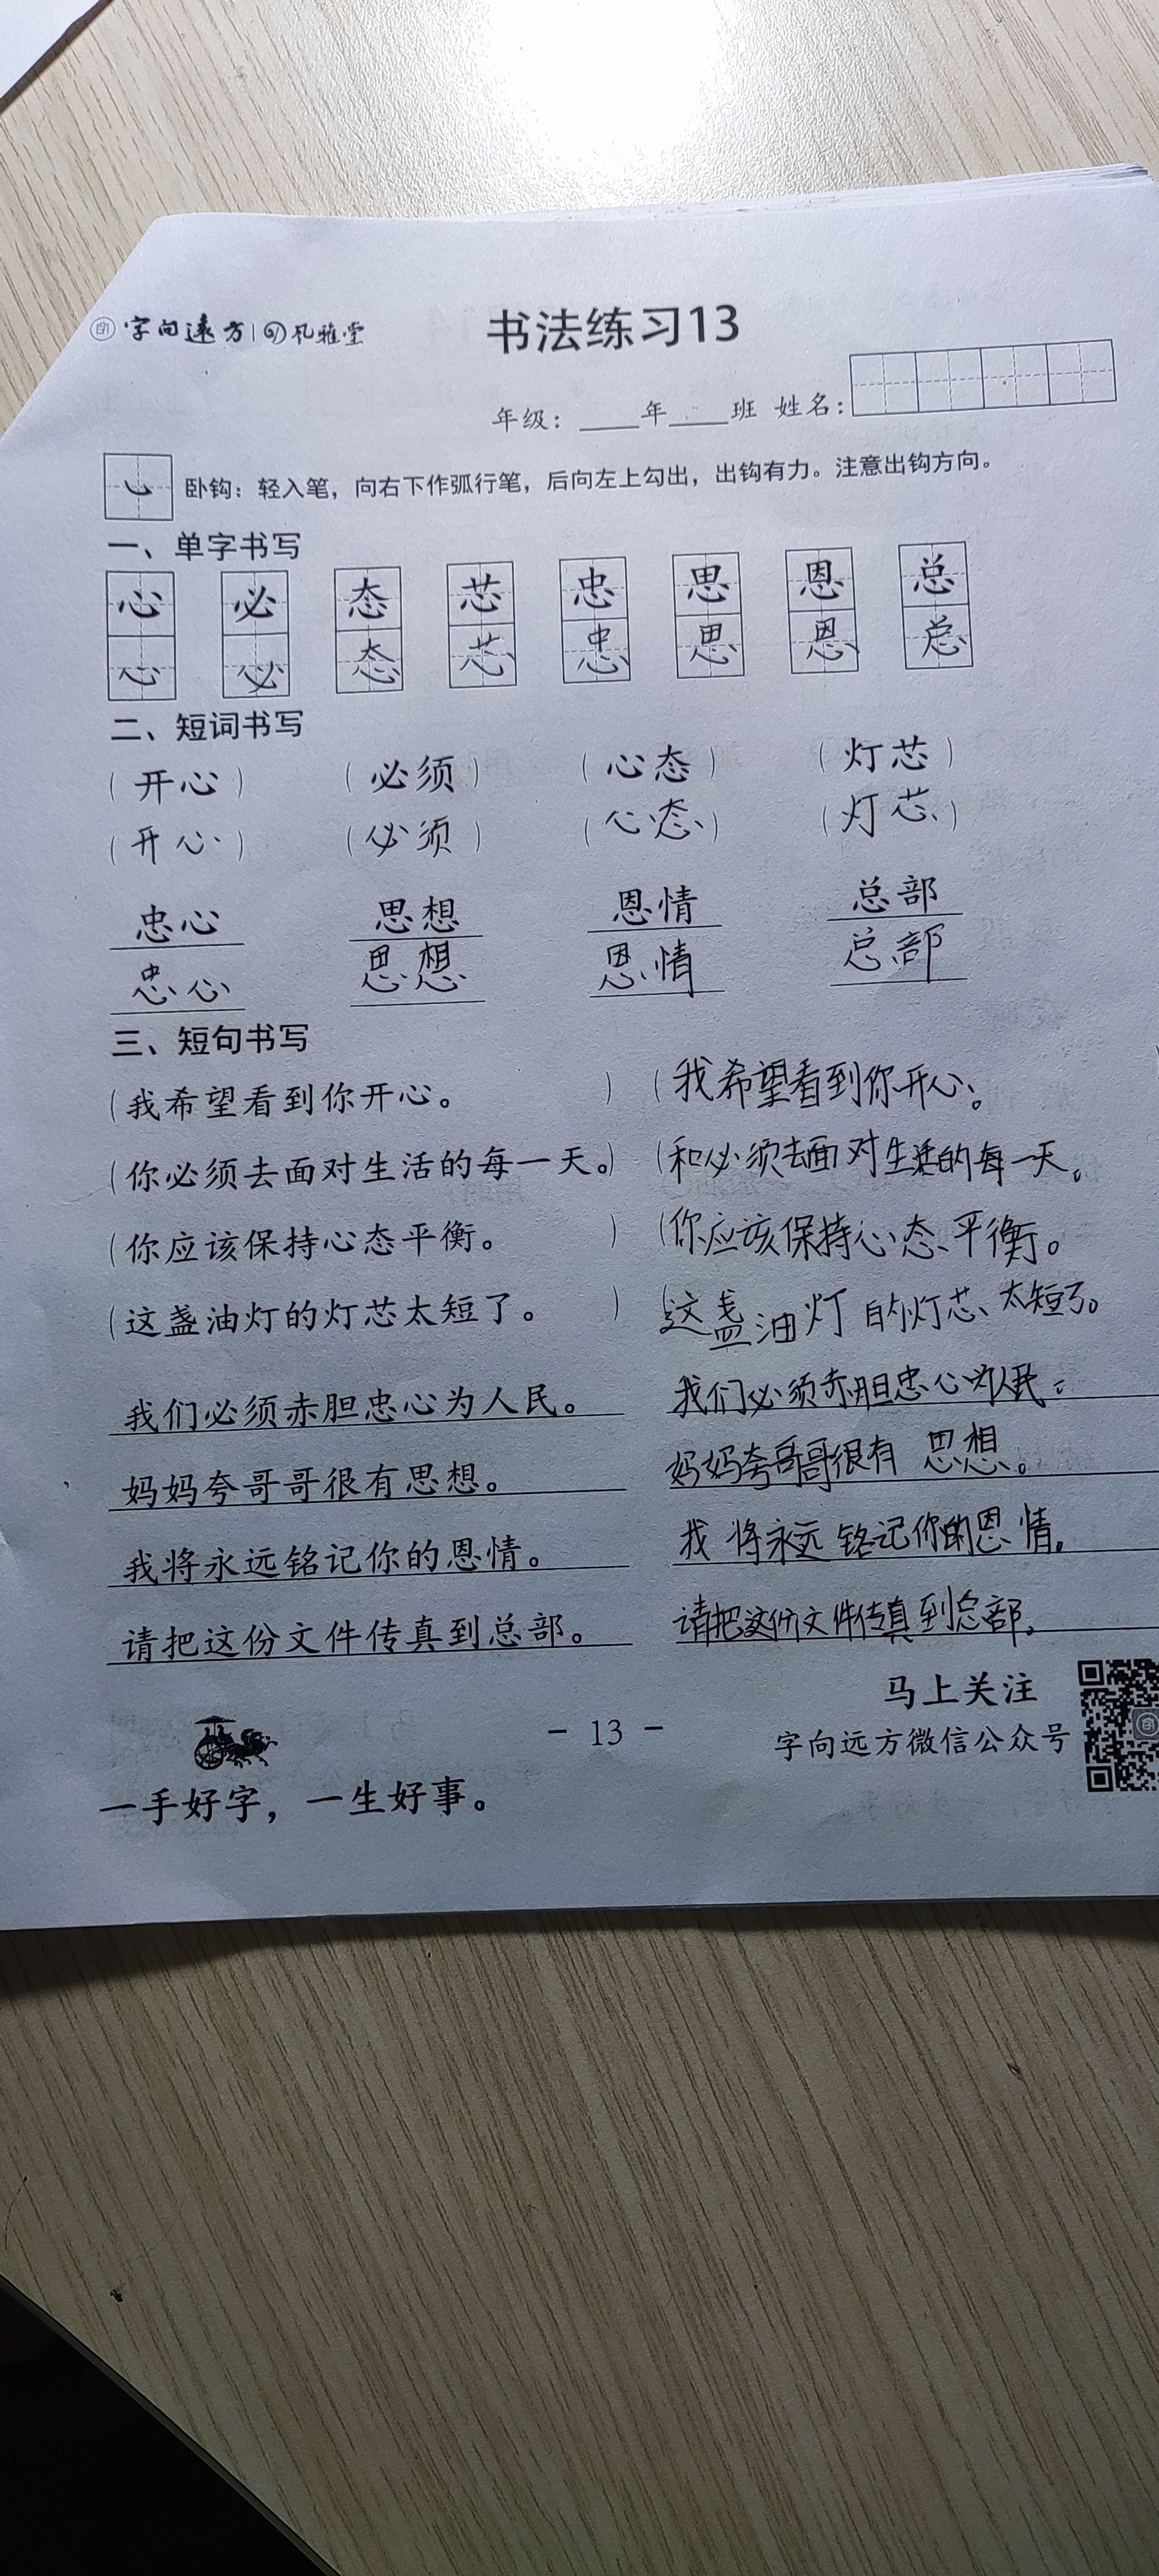 字向远方 孔雅堂
书法练习13
年级：____年____班 姓名：
卧钩：轻入笔，向右下作弧行笔，后向左上勾出，出钩有力。注意出钩方向。
一、单字书写
心 必 态 芯 忠 思 恩 总
心 必 态 芯 忠 思 恩 总
二、短词书写
（开心） （必须） （心态） （灯芯）
（开心） （必须） （心态） （灯芯）
忠心 思想 恩情 总部
忠心 思想 恩情 总部
三、短句书写
（我希望看到你开心。） （我希望看到你开心。
（你必须去面对生活的每一天。） （和必须去面对生活的每一天。
（你应该保持心态平衡。） （你应该保持心态平衡。
（这盏油灯的灯芯太短了。） （这盏油灯的灯芯太短了。
我们必须赤胆忠心为人民。 我们必须赤胆忠心为人民。
妈妈夸哥哥很有思想。 妈妈夸哥哥很有思想。
我将永远铭记你的恩情。 我将永远铭记你的恩情。
请把这份文件传真到总部。 请把这份文件传真到总部。
马上关注
- 13 -
字向远方微信公众号
一手好字，一生好事。